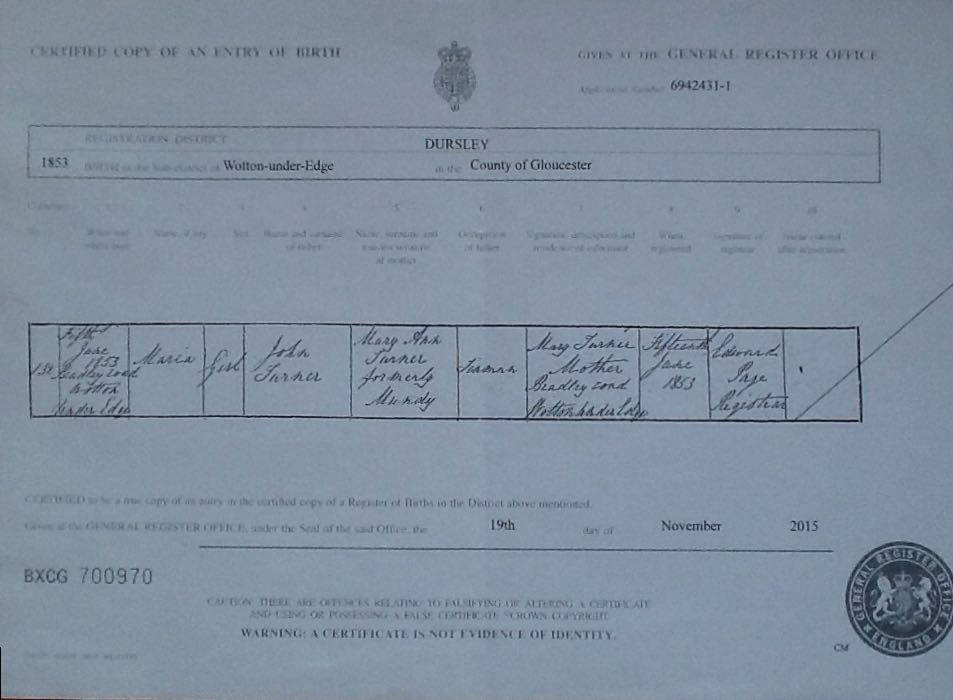 CERTIFIED COPY OF AN ENTRY OF BIRTH
GIVEN AT THE GENERAL REGISTER OFFICE
Application Number 6942431-1
REGISTRATION DISTRICT DURSLEY
1853 BIRTH in the Sub-district of Wotton-under-Edge in the County of Gloucester
Columns:- 1 2 3 4 5 6 7 8 9 10
No. When and where born
Name, if any
Sex
Name and surname of father
Name, surname and maiden surname of mother
Occupation of father
Signature, description and residence of informant
When registered
Signature of registrar
Name entered after registration
Fifth
June
1853
Bradley road
Wotton
Under Edge
Maria
Girl
John
Turner
Mary Ann
Turner
formerly
Mundy
Mary Turner
Mother
Bradley road
Wotton under Edge
Fifteenth
June
1853
Edward
Page
Registrar
CERTIFIED to be a true copy of an entry in the certified copy of a Register of Births in the District above mentioned.
Given at the GENERAL REGISTER OFFICE, under the Seal of the said Office, the 19th day of November 2015
BXCG 700970
CAUTION: THERE ARE OFFENCES RELATING TO FALSIFYING OR ALTERING A CERTIFICATE
AND USING OR POSSESSING A FALSE CERTIFICATE ©CROWN COPYRIGHT
WARNING: A CERTIFICATE IS NOT EVIDENCE OF IDENTITY.
CM
GENERAL REGISTER OFFICE
ENGLAND